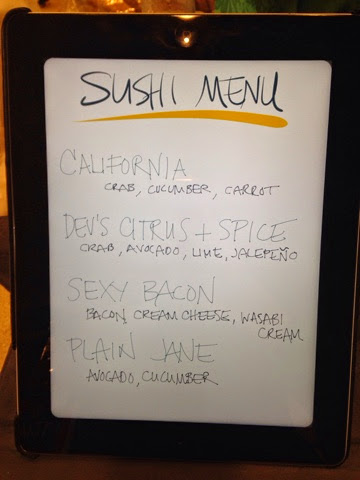 SUSHI MENU
CALIFORNIA
CRAB, CUCUMBER, CARROT
DEV'S CITRUS + SPICE
CRAB, AVOCADO, LIME, JALEPEÑO
SEXY BACON
BACON, CREAM CHEESE, WASABI
CREAM
PLAIN JANE
AVOCADO, CUCUMBER